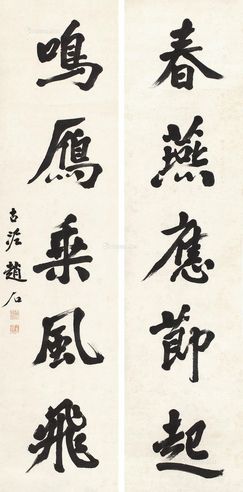 春燕應節起
鳴鴈乘風飛
古泥趙石